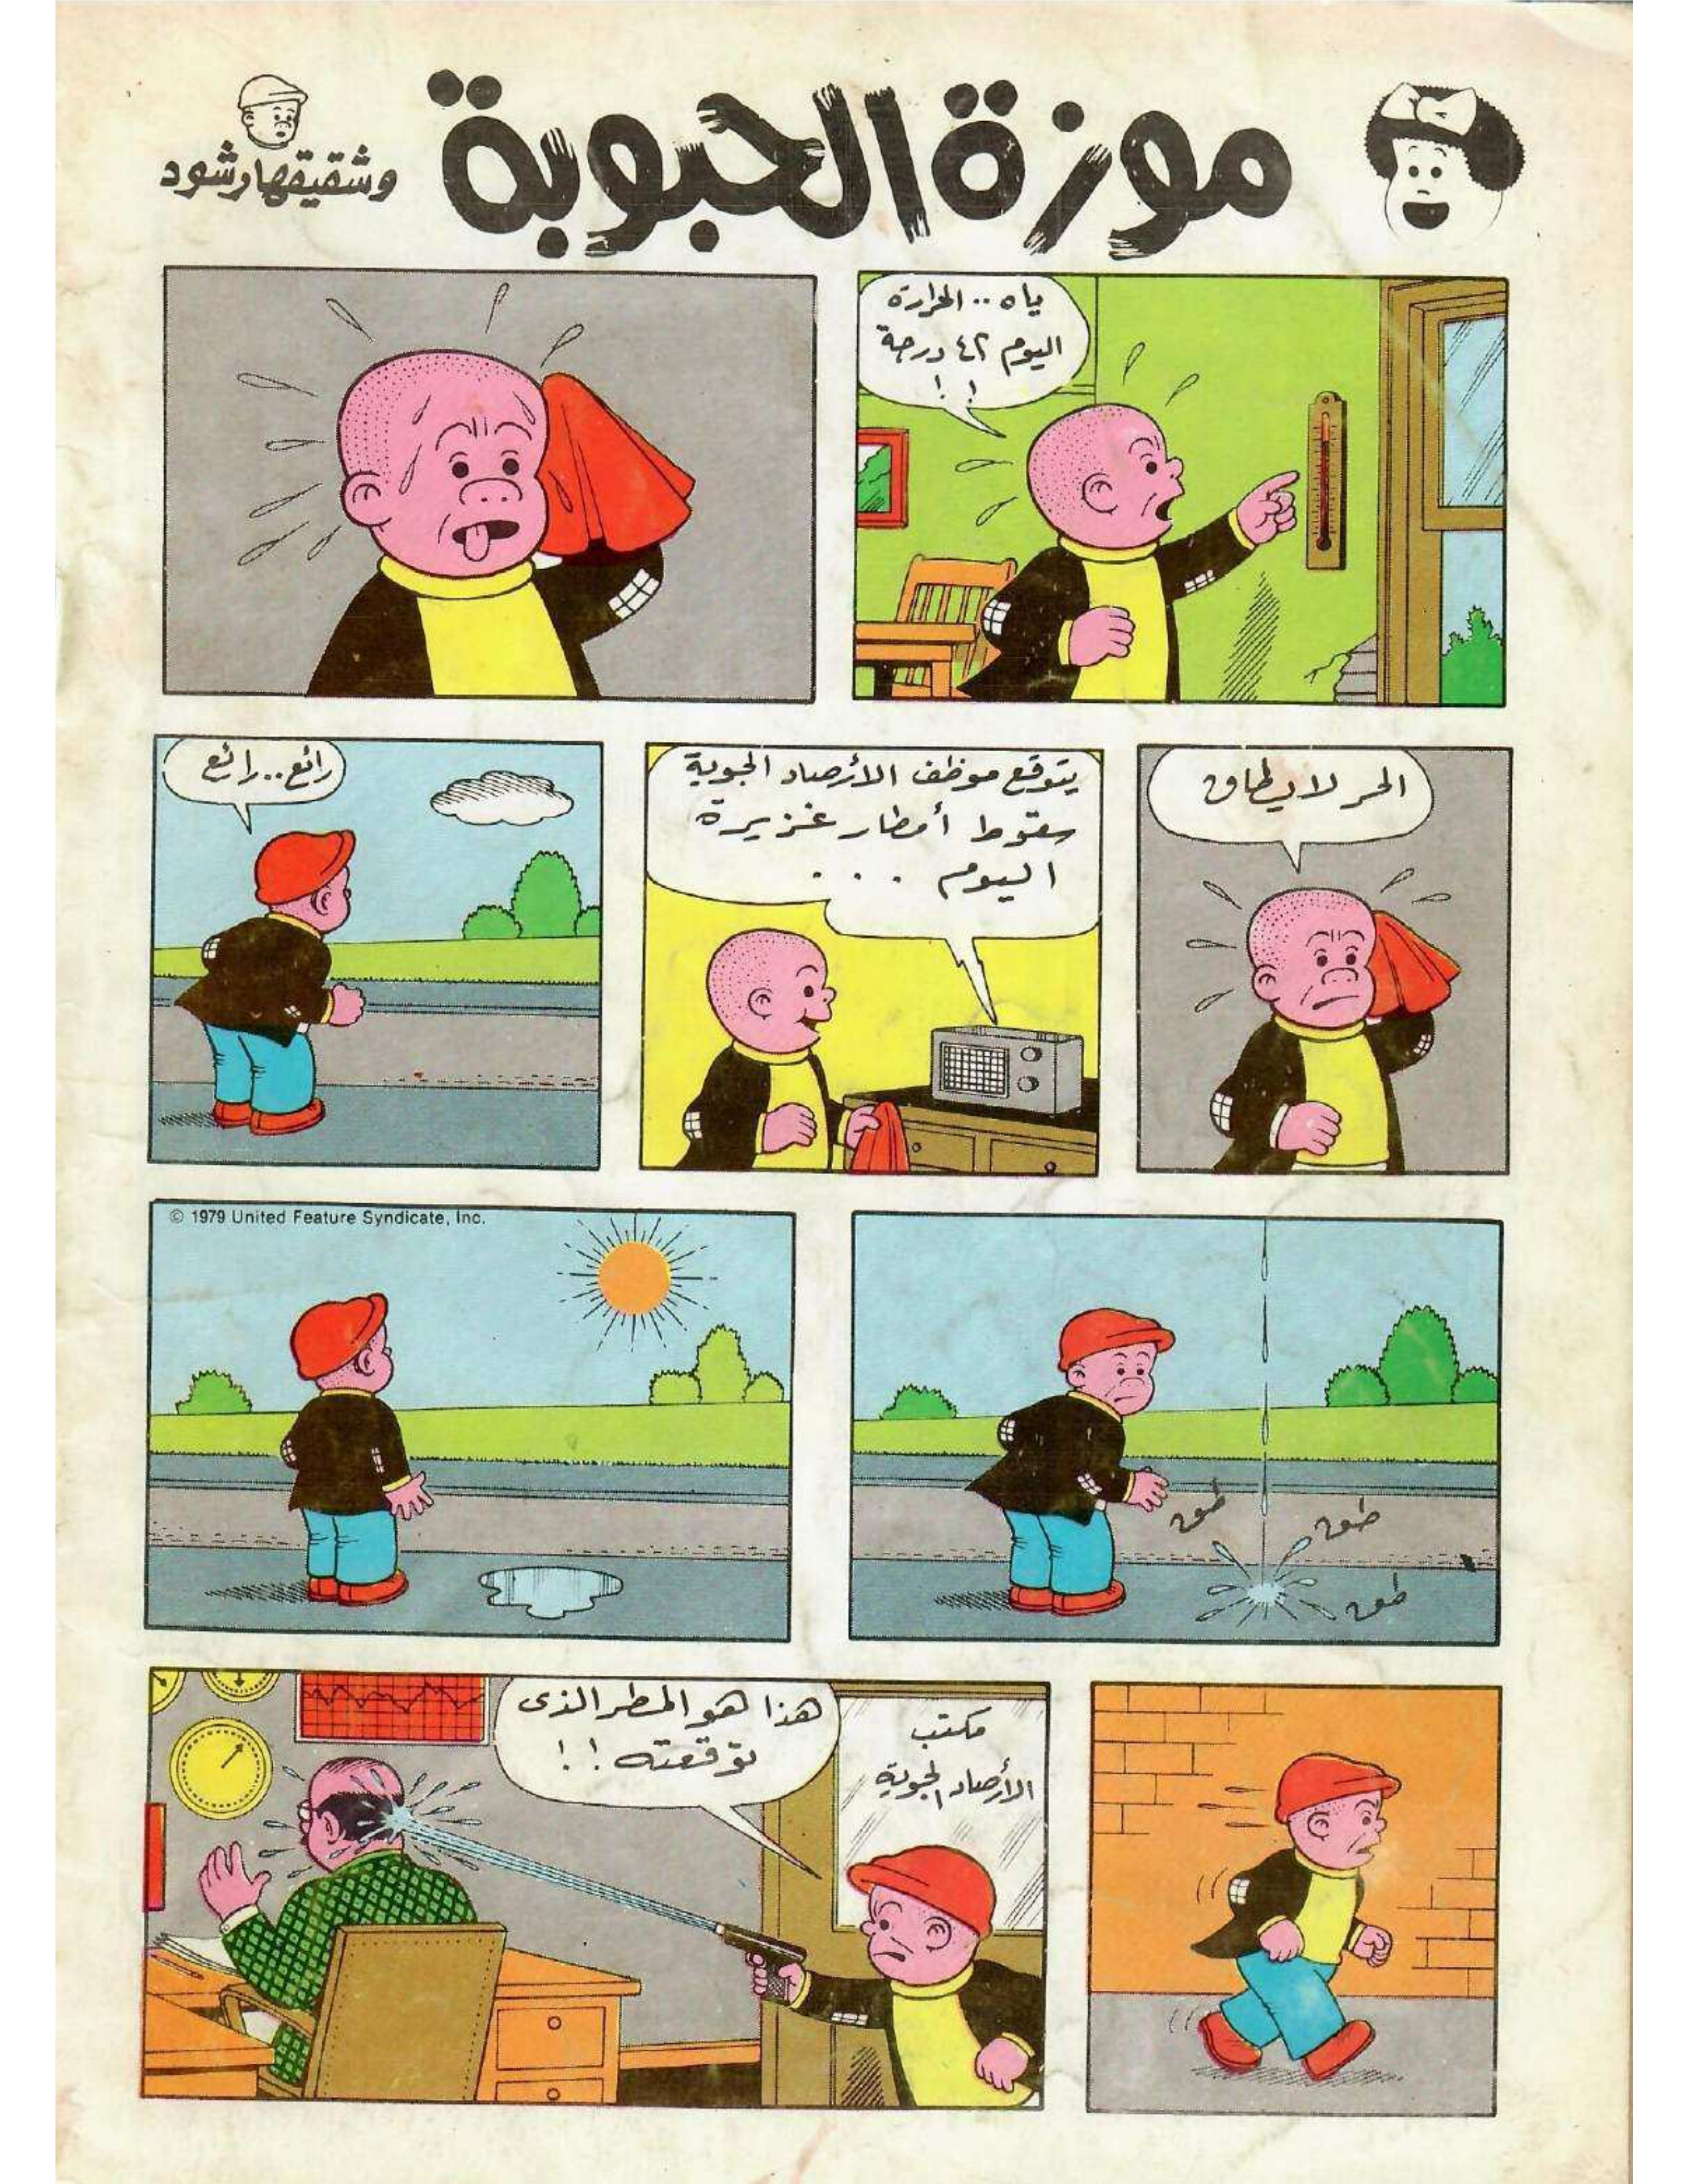 موزة الحبوبة
وشقيقها رشود
ياه .. الحرارة
اليوم ٤٢ درجة
! !
الحر لا يطاق
يتوقع موظف الأرصاد الجوية
سقوط أمطار غزيرة
اليوم . . .
رائع .. رائع
طق
طق
طق
© 1979 United Feature Syndicate, Inc.
مكتب
الأرصاد الجوية
هذا هو المطر الذى
توقعته ! !